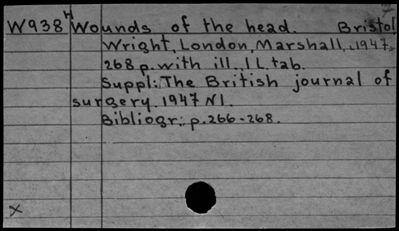 W938 H Wounds of the head. Bristol
Wright, London, Marshall, 1947,
268 p. with ill., 1 L. tab.
Suppl.: The British journal of
surgery. 1947 N1.
Bibliogr.: p. 266-268.
x